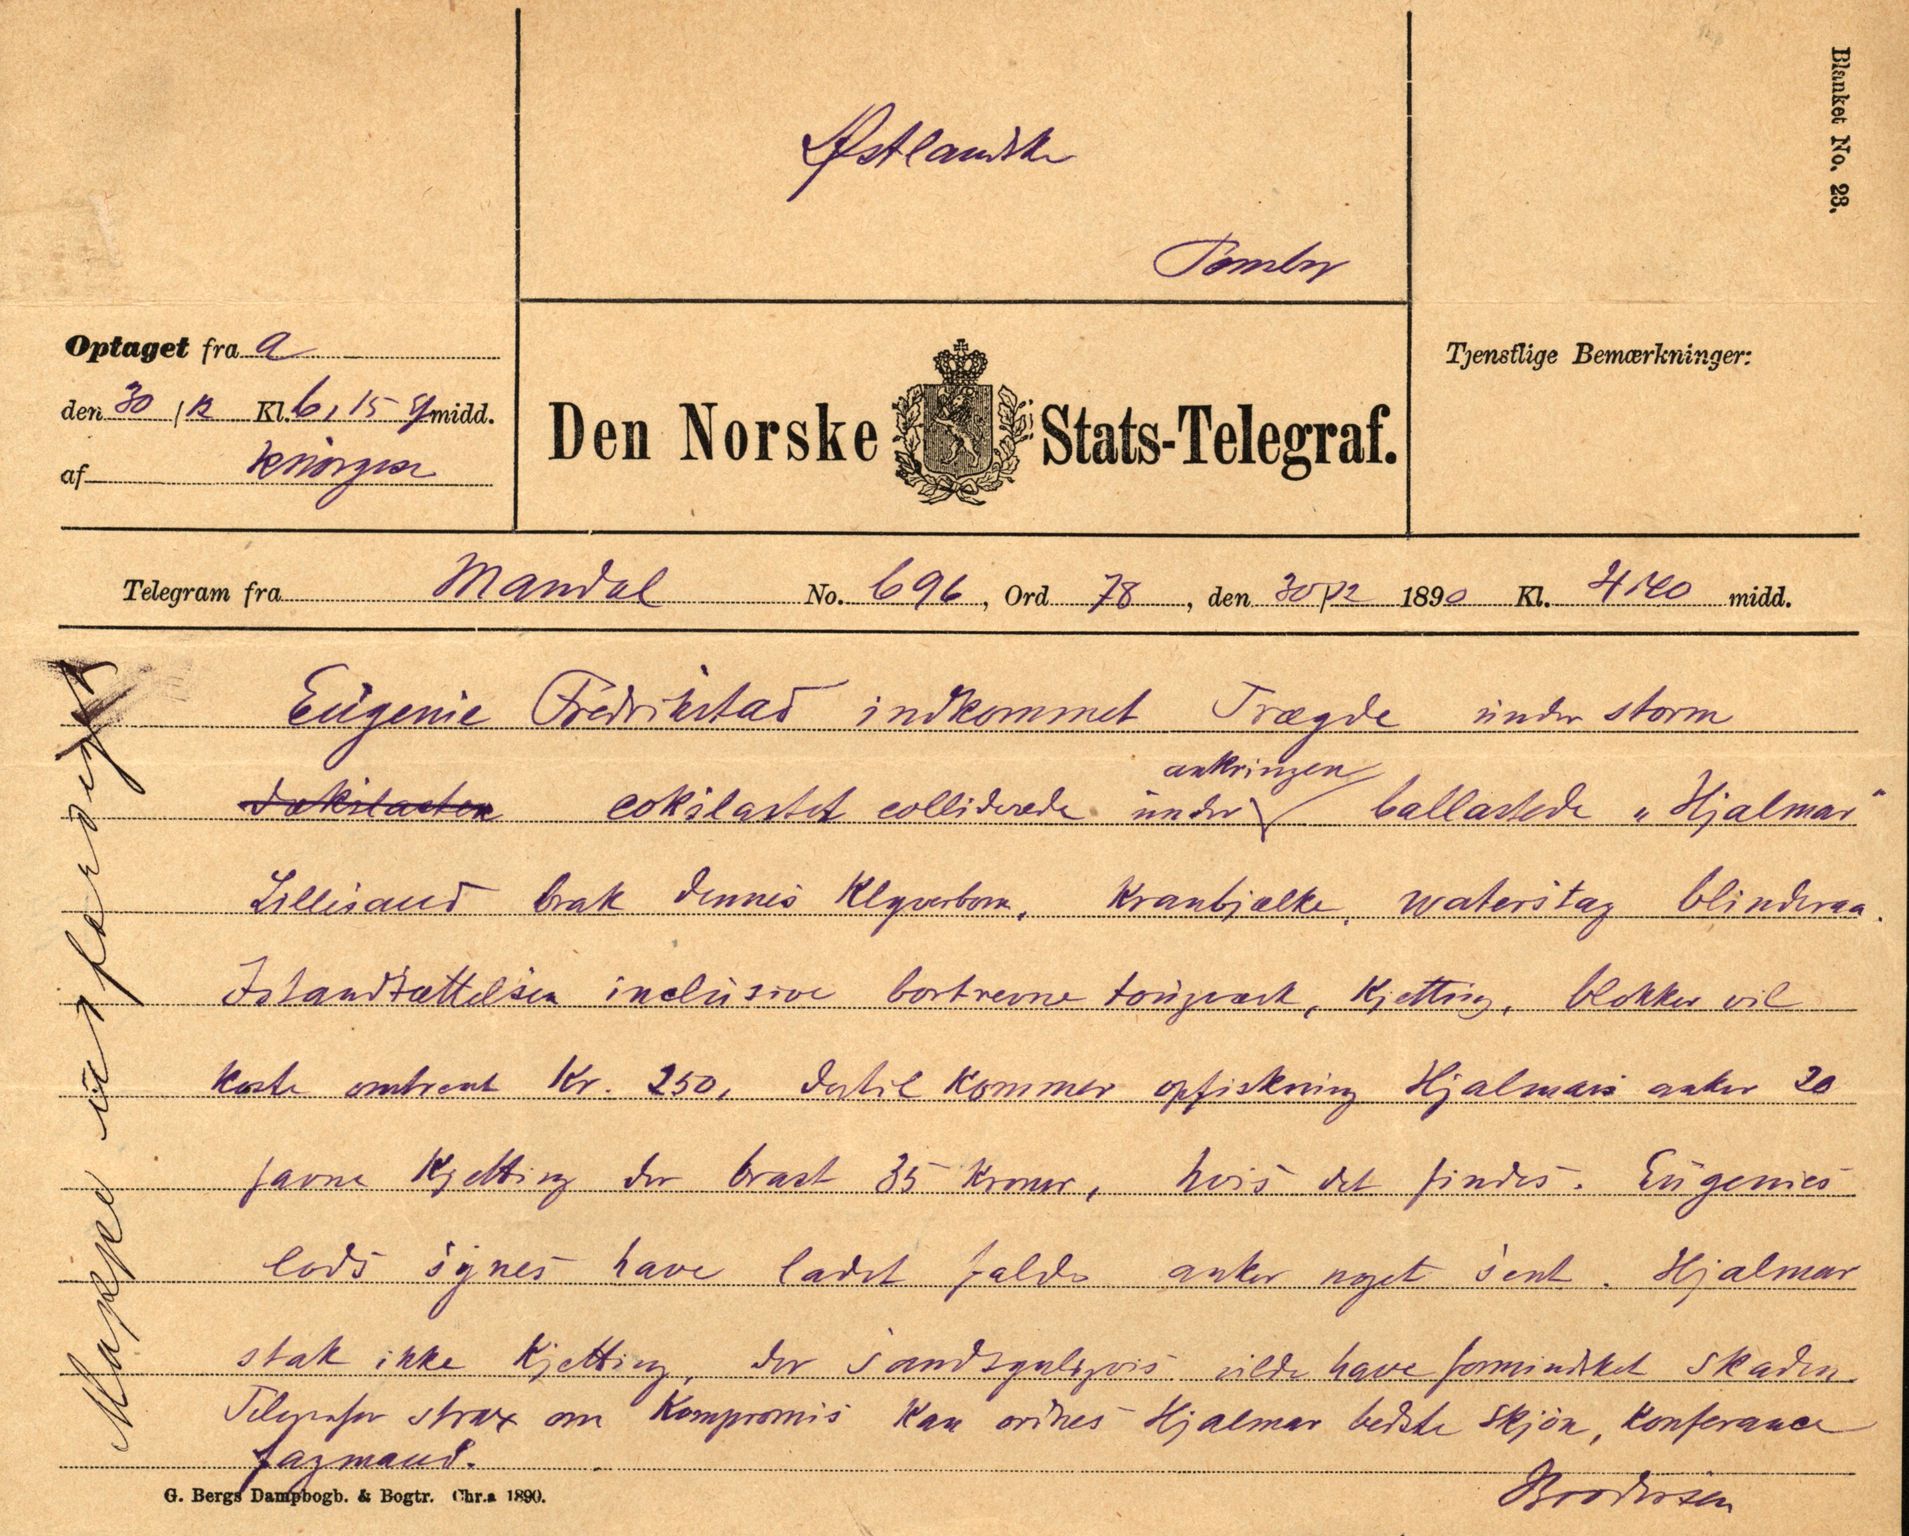 Blanket No. 23.
Østlandske
Optaget fra a
den 30 / 12 Kl. 6,15 E midd.
af
Den Norske Stats-Telegraf.
Tjenstlige Bemærkninger:
Telegram fra Mandal No. 696, Ord 78, den 30/12 1890 Kl. 4,40 midd.
Eugenie Fredrikstad indkommet Trægde under storm
cokslastet colliderede under ankringen ballastede „Hjalmar“
Lillesand brak dennes Klyverbom, Kranbjælke, waterstag blinderaa.
Istandsættelsen inclusive bortrevne tougværk, Kjetting, blokker vil
koste omtrent Kr. 250, dertil kommer opfiskning Hjalmars anker 20
favne Kjetting der brast 35 Kroner, hvis det findes. Eugenies
lods synes have ladet falde anker noget sent. Hjalmar
stak ikke Kjetting, der sandsynligvis vilde have formindsket skaden
Telegrafer strax om Kompromis kan ordnes Hjalmar bedste skjøn, Konferance
fagmand.
Brodersen
Mappe
G. Bergs Dampbogb. & Bogtr. Chr.a 1890.